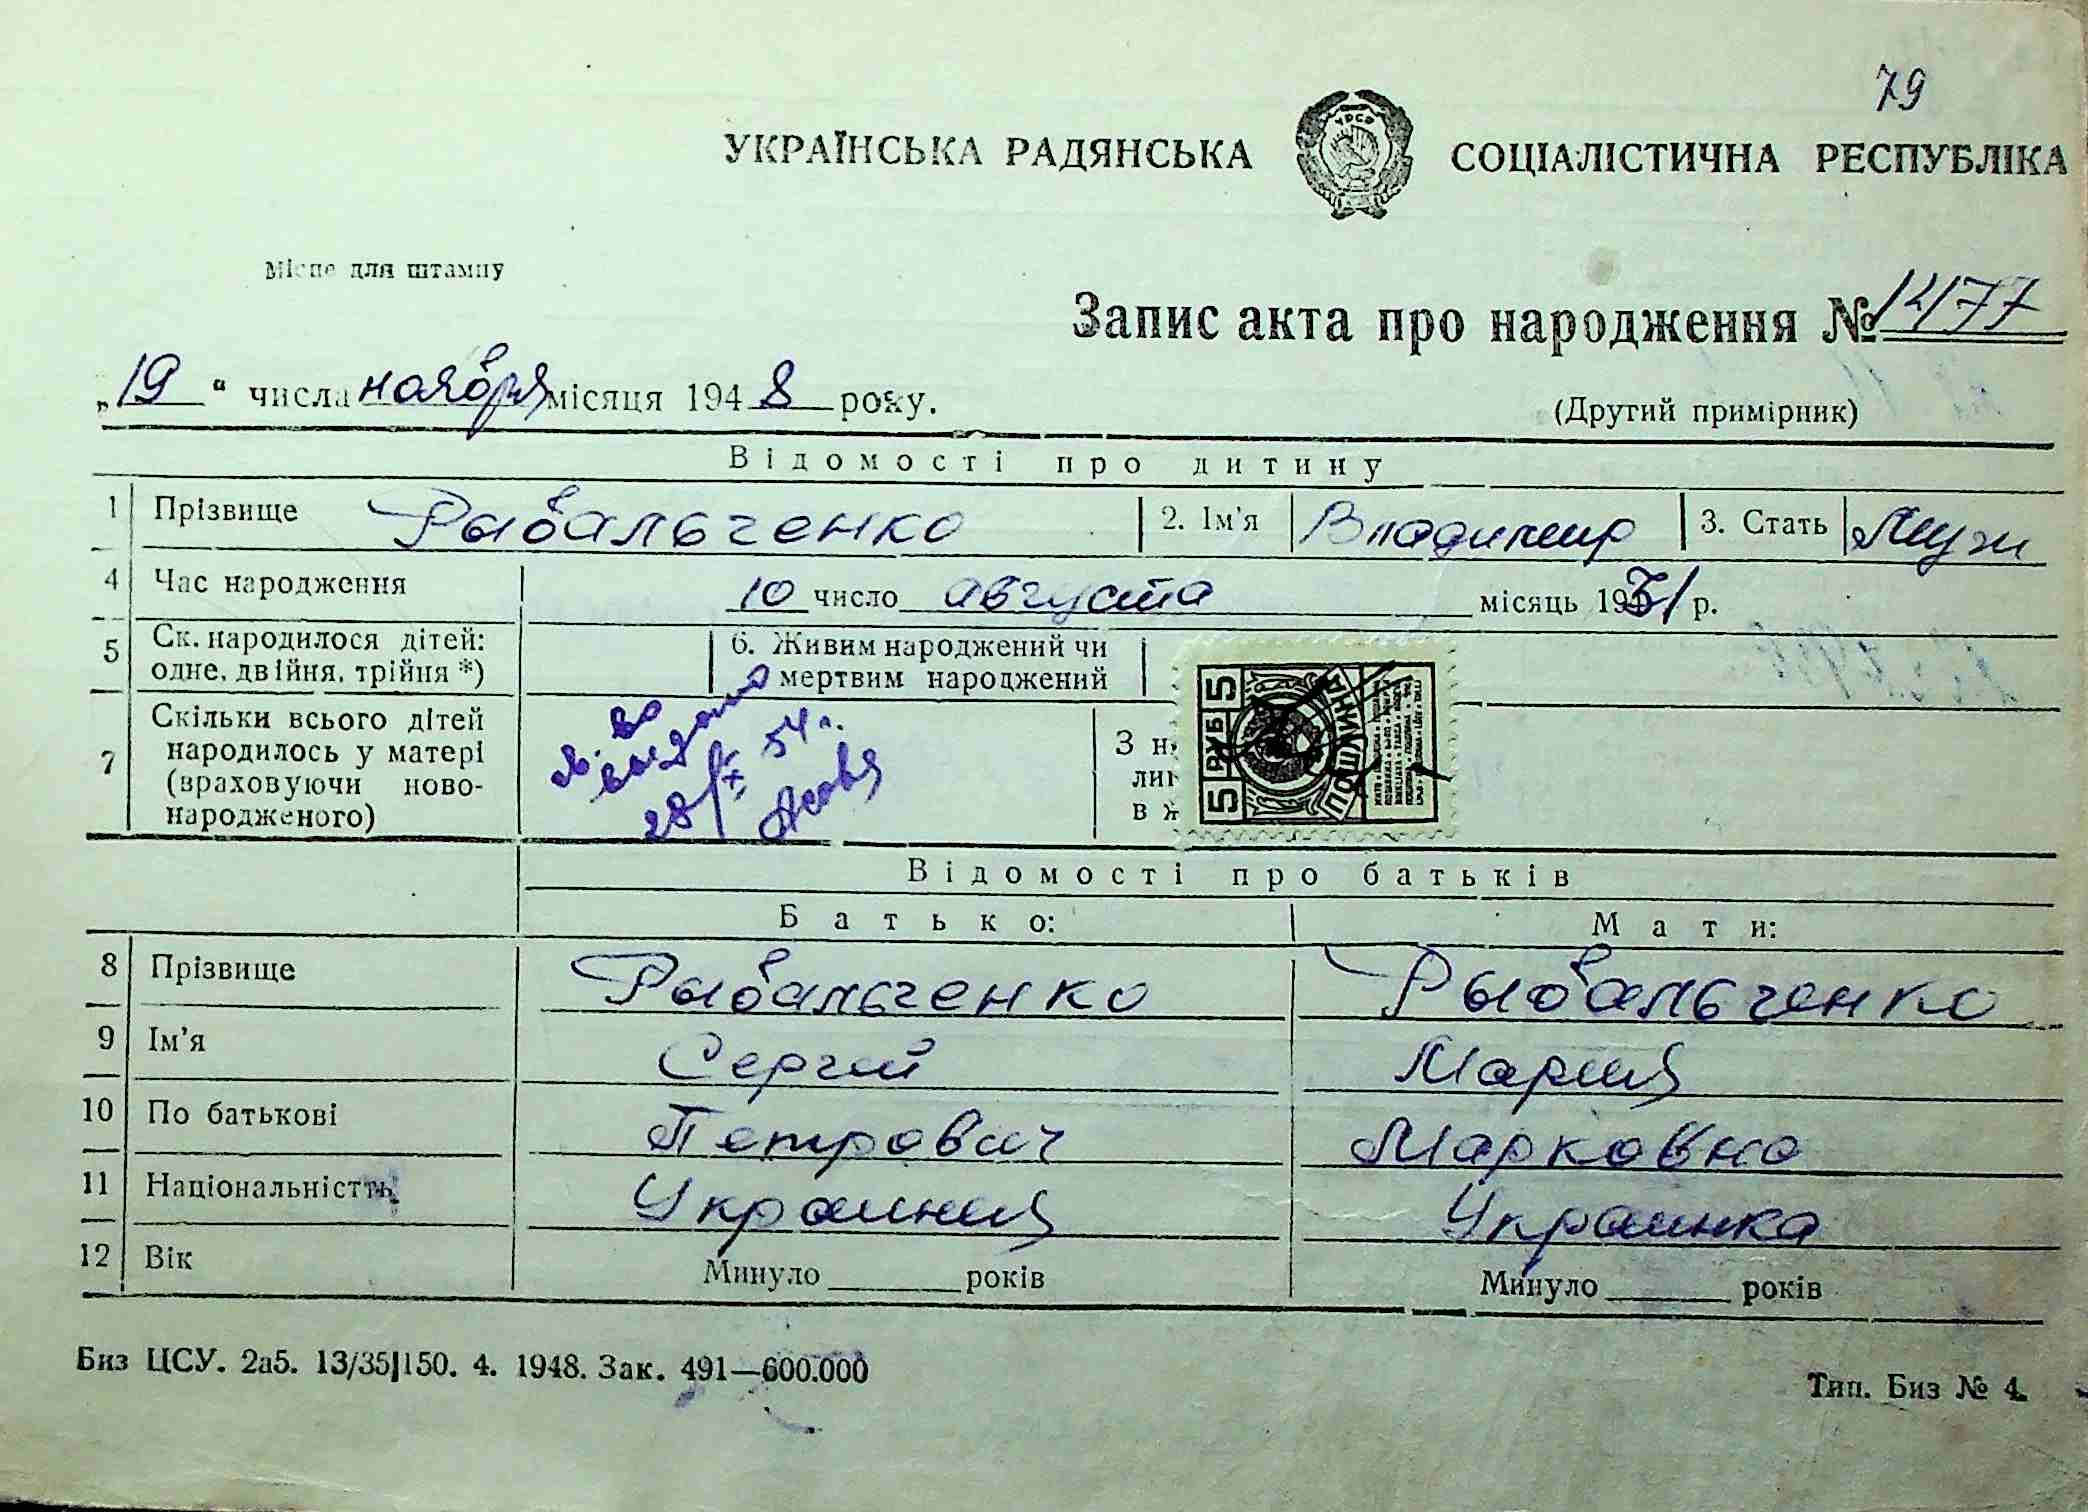 79
УКРАЇНСЬКА РАДЯНСЬКА СОЦІАЛІСТИЧНА РЕСПУБЛІКА
УРСР
Місце для штампу
Запис акта про народження № 1477
„19" числа ноября місяця 1948 року.
(Другий примірник)
Відомості про дитину
1 Прізвище Рыбальченко 2. Ім'я Владимир 3. Стать Муж
4 Час народження 10 число августа місяць 1931 р.
5 Ск. народилося дітей: одне, двійня, трійня *) 6. Живим народжений чи мертвим народжений
7 Скільки всього дітей народилось у матері (враховуючи новонародженого) З н лиг в ж
св. во
выдано
28/IX 54 г.
5 РУБ 5
ПОШЛИНА
Відомості про батьків
Батько: Мати:
8 Прізвище Рыбальченко Рыбальченко
9 Ім'я Сергей Мария
10 По батькові Петрович Марковна
11 Національність Украинец Украинка
12 Вік Минуло років Минуло років
Биз ЦСУ. 2а5. 13/35|150. 4. 1948. Зак. 491—600.000 Тип. Биз № 4.